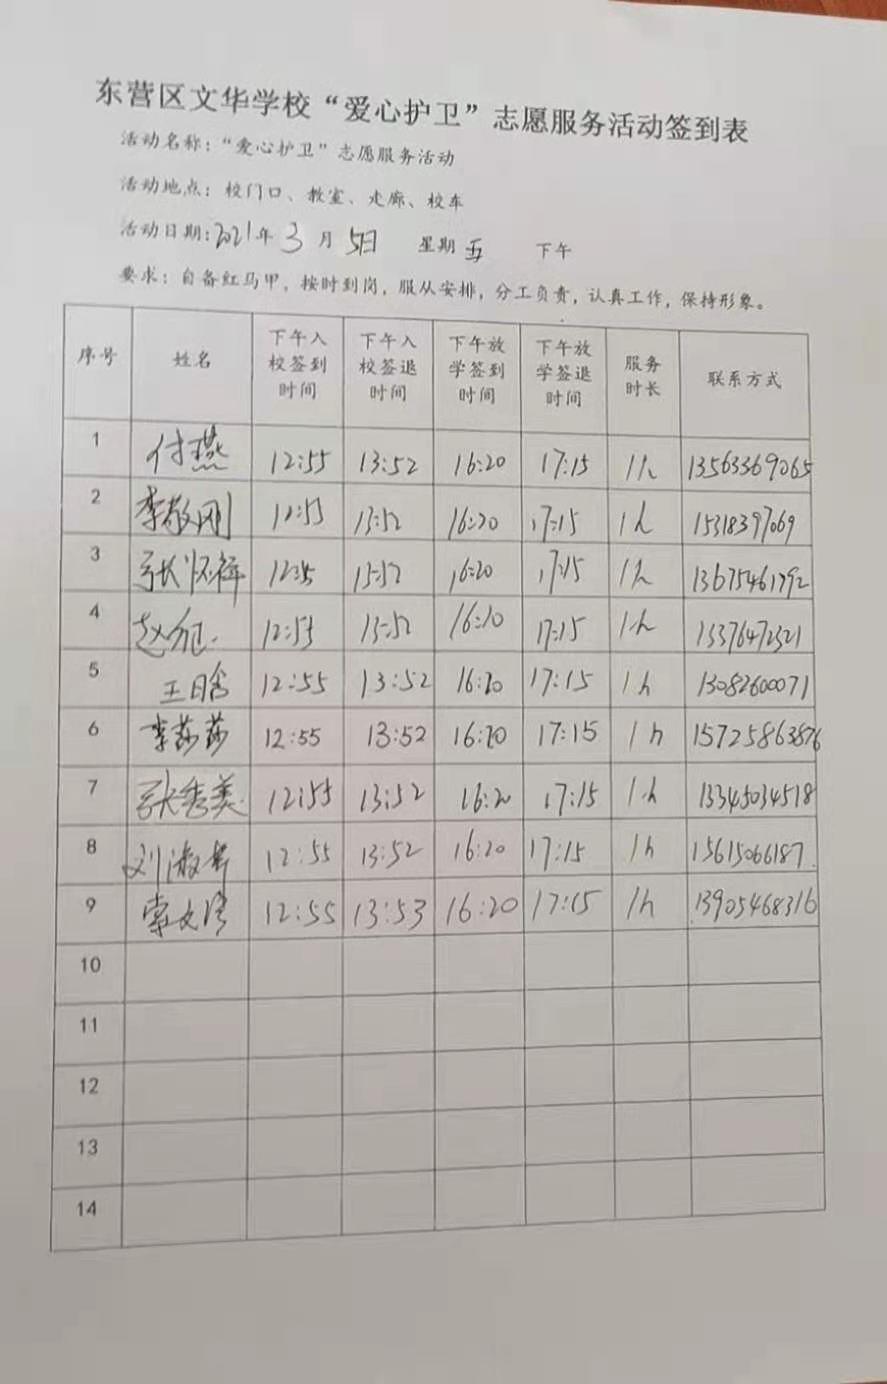 东营区文华学校“爱心护卫”志愿服务活动签到表
活动名称：“爱心护卫”志愿服务活动
活动地点：校门口、教室、走廊、校车
活动日期：2021年 3 月 5日 星期五 下午
要求：自备红马甲，按时到岗，服从安排，分工负责，认真工作，保持形象。
序号 姓名 下午入校签到时间 下午入校签退时间 下午放学签到时间 下午放学签退时间 服务时长 联系方式
1 付燕 12:55 13:52 16:20 17:15 1h 13563369065
2 李敬刚 12:55 13:52 16:20 17:15 1h 15318397069
3 张怀祥 12:55 13:52 16:20 17:15 1h 13675461792
4 12:55 13:52 16:20 17:15 1h 13376472321
5 王日含 12:55 13:52 16:20 17:15 1h 13082600071
6 李莎莎 12:55 13:52 16:20 17:15 1h 15725863876
7 张秀美 12:55 13:52 16:20 17:15 1h 13345034518
8 12:55 13:52 16:20 17:15 1h 15615066187
9 12:55 13:53 16:20 17:15 1h 13905468316
10
11
12
13
14